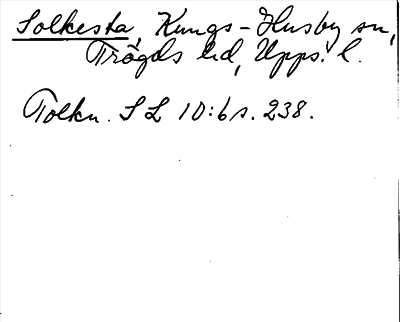 Solkesta, Kungs-Husby sn,
Trögds hd, Upps. l.
Tolkn. SL 10:6 s. 238.